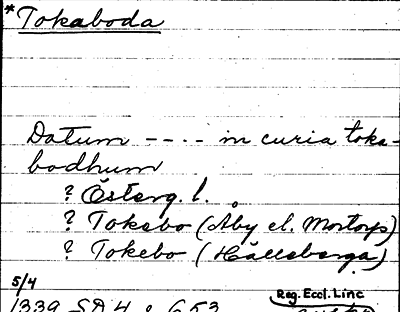 *Tokaboda
Datum ---- in curia toka-
bodhum
? Österg. l.
? Tokebo (Åby el. Mortorp)
? Tokebo (Hälleberga)
5/4
Reg. Eccl. Linc
1339 SD 4 s 653